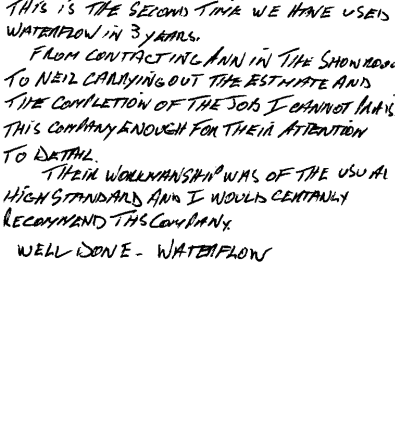 THIS IS THE SECOND TIME WE HAVE USED
WATERFLOW IN 3 YEARS.
FROM CONTACTING ANN IN THE SHOWROO
TO NEIL CARRYING OUT THE ESTMIATE AND
THE COMPLETION OF THE JOB I CANNOT PRAIS
THIS COMPANY ENOUGH FOR THEIR ATTENTION
TO DETAIL.
THEIR WORKMANSHIP WAS OF THE USUAL
HIGH STANDARD AND I WOULD CERTANLY
RECOMMEND THS COMPANY.
WELL DONE - WATERFLOW